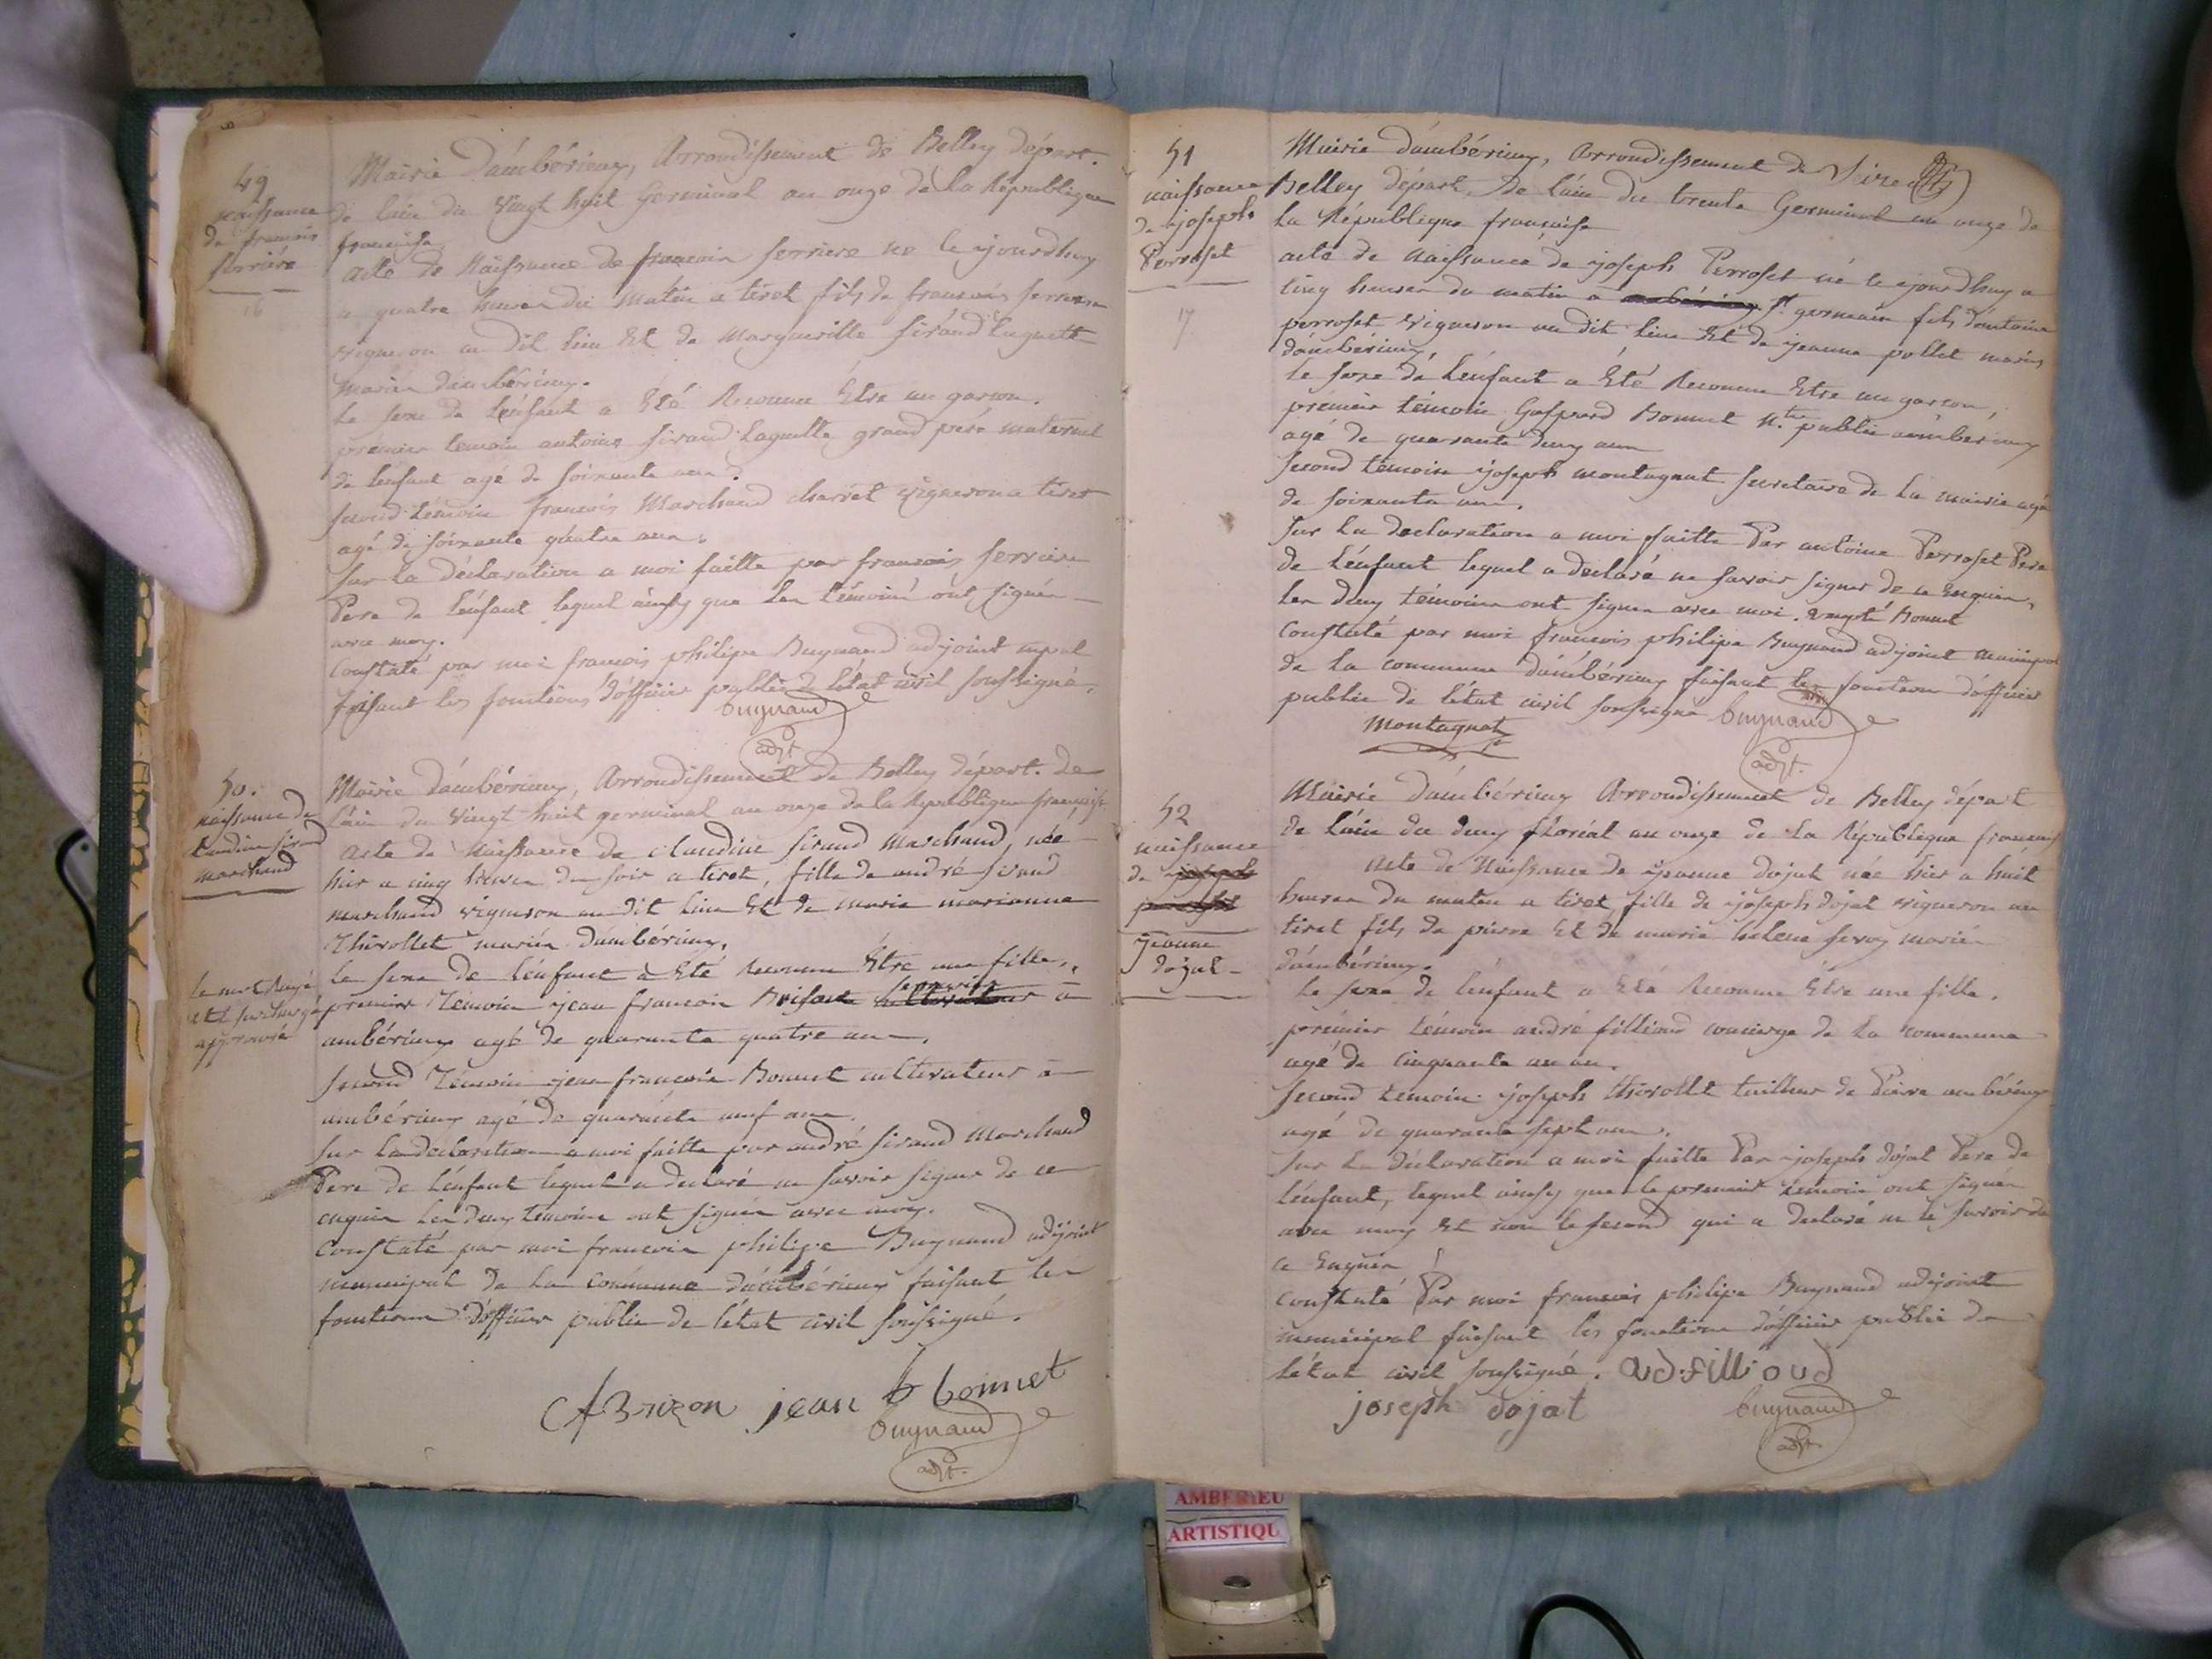 49
naissance
de francois
ferriere
16
Mairie d'ambérieux, Arrondissement de Belley départ.
de lain du vingt huit Germinal an onze de la République
francaise
acte de Naissance de francois ferriere né le ajourdhuy
a quatre heures du matin a tiret fils de francois ferriere
vigneron au dit lieu Et de Margueritte sirand Laguette
mariés d'ambérieux.
le sexe de l'énfant a Eté Reconnu Être un garson.
premier temoin antoine sirand Laguette grand père maternel
de lénfant agé de soixante ans.
second témoin francois Marchand charvet vigneron a tiret
agé de soixante quatre ans.
sur la déclaration a moi faitte par francois ferriere
Pere de lénfant lequel ainsy que les témoins ont signés
avec moy.
Constaté par moi francois philipe Buynand adjoint mpal
faisant les fonctions d'officier public de létat civil soussigné.
buynand
adjt.
50.
naissance de
Claudine sirand
marchand
Mairie d'ambérieux, Arrondissement de Belley départ. de
lain du vingt huit germinal an onze de la République francaise
acte de Naissance de claudine sirand Marchand, née
hier a cinq heures du soir a tiret, fille de andré sirand
marchand vigneron au dit lieu Et de marie marianne
Thévollet mariés d'ambérieux.
le sexe de lénfant à Eté Reconnu Être une fille.
le mot Rayé
et le surchargé
approuvé
premier Témoin jean francois Brison à
ambérieux agé de quarante quatre ans.
second Témoin jean francois Bonnet cultivateur à
ambérieux agé de quarante neuf ans.
sur la declaration a moi faitte par andré sirand Marchand
Pere de lénfant lequel a declaré ne savoir signer de ce
enquis les deux témoins ont signés avec moy.
Constaté par moi francois philipe Buynand adjoint
municipal de la commune d'ambérieux faisant les
fonctions d'officier public de létat civil soussigné.
Brizon jean f bonnet
buynand
adjt.
51
naissance
de joseph
Perroset
17
Mairie d'ambérieux, Arrondissement de
Belley départ. de l'ain du trente Germinal an onze de
la République francaise
acte de naissance de joseph Perroset né le ajourdhuy a
cinq heures du matin a St. germain fils d'antoine
perroset vigneron au dit lieu Et de jeanne pollet mariés
d'ambérieux,
le sexe de lénfant a Eté Reconnu Etre un garson,
premier témoin Gaspard Bonnet Nre. public a ambérieux
agé de quarante deux ans
second témoin joseph montagnat secretaire de la mairie agé
de soixante ans.
sur la declaration a moi faitte Par antoine Perroset Pere
de lénfant lequel a declaré ne savoir signer de ce Enquis,
les deux témoins ont signés avec moi. Excepté Bonnet
Constaté par moi francois philipe Buynand adjoint municipal
de la commune d'ambérieux faisant les fonctions d'officier
public de létat civil soussigné buynand
montagnat
adjt.
52
naissance
de joseph
perroset
jeanne
dojat
Mairie d'ambérieux Arrondissement de Belley départ
de láin du deux floréal an onze de la République francaise
acte de Naissance de jeanne dojat née hier a huit
heures du matin a tiret, fille de joseph dojat vigneron au
tiret fils de pierre Et de marie helene mariés
d'ambérieux.
le sexe de lénfant a Eté Reconnu Être une fille.
prémier témoin andré fillioud concierge de la commune
agé de cinquante un an.
second temoin joseph thévollet tailleur de Pierre ambérieux
agé de quarante sept ans.
sur la déclaration a moi faitte Par joseph dojat Pere de
lénfant, lequel ainsy que le premier témoin ont signés
avec moy Et non le second qui a declaré ne le savoir de
ce Enquis
Constaté Par moi francois philipe Buynand adjoint
municipal faisant les fonctions d'officier public de
létat civil soussigné. ad.filli oud
joseph dojat
buynand
adjt.
AMBERIEU
ARTISTIQU